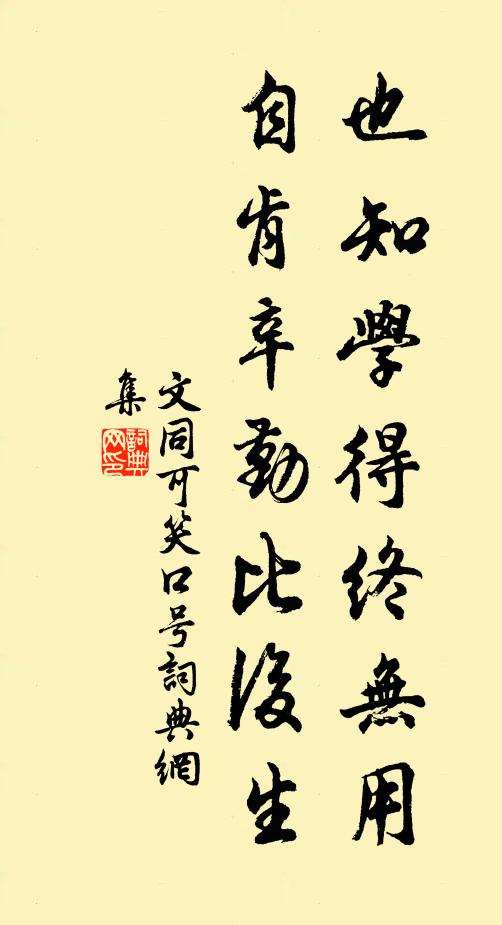 也知學得終無用
自肯辛勤比後生
文同可笑口号詞典網
集
詞典
网印